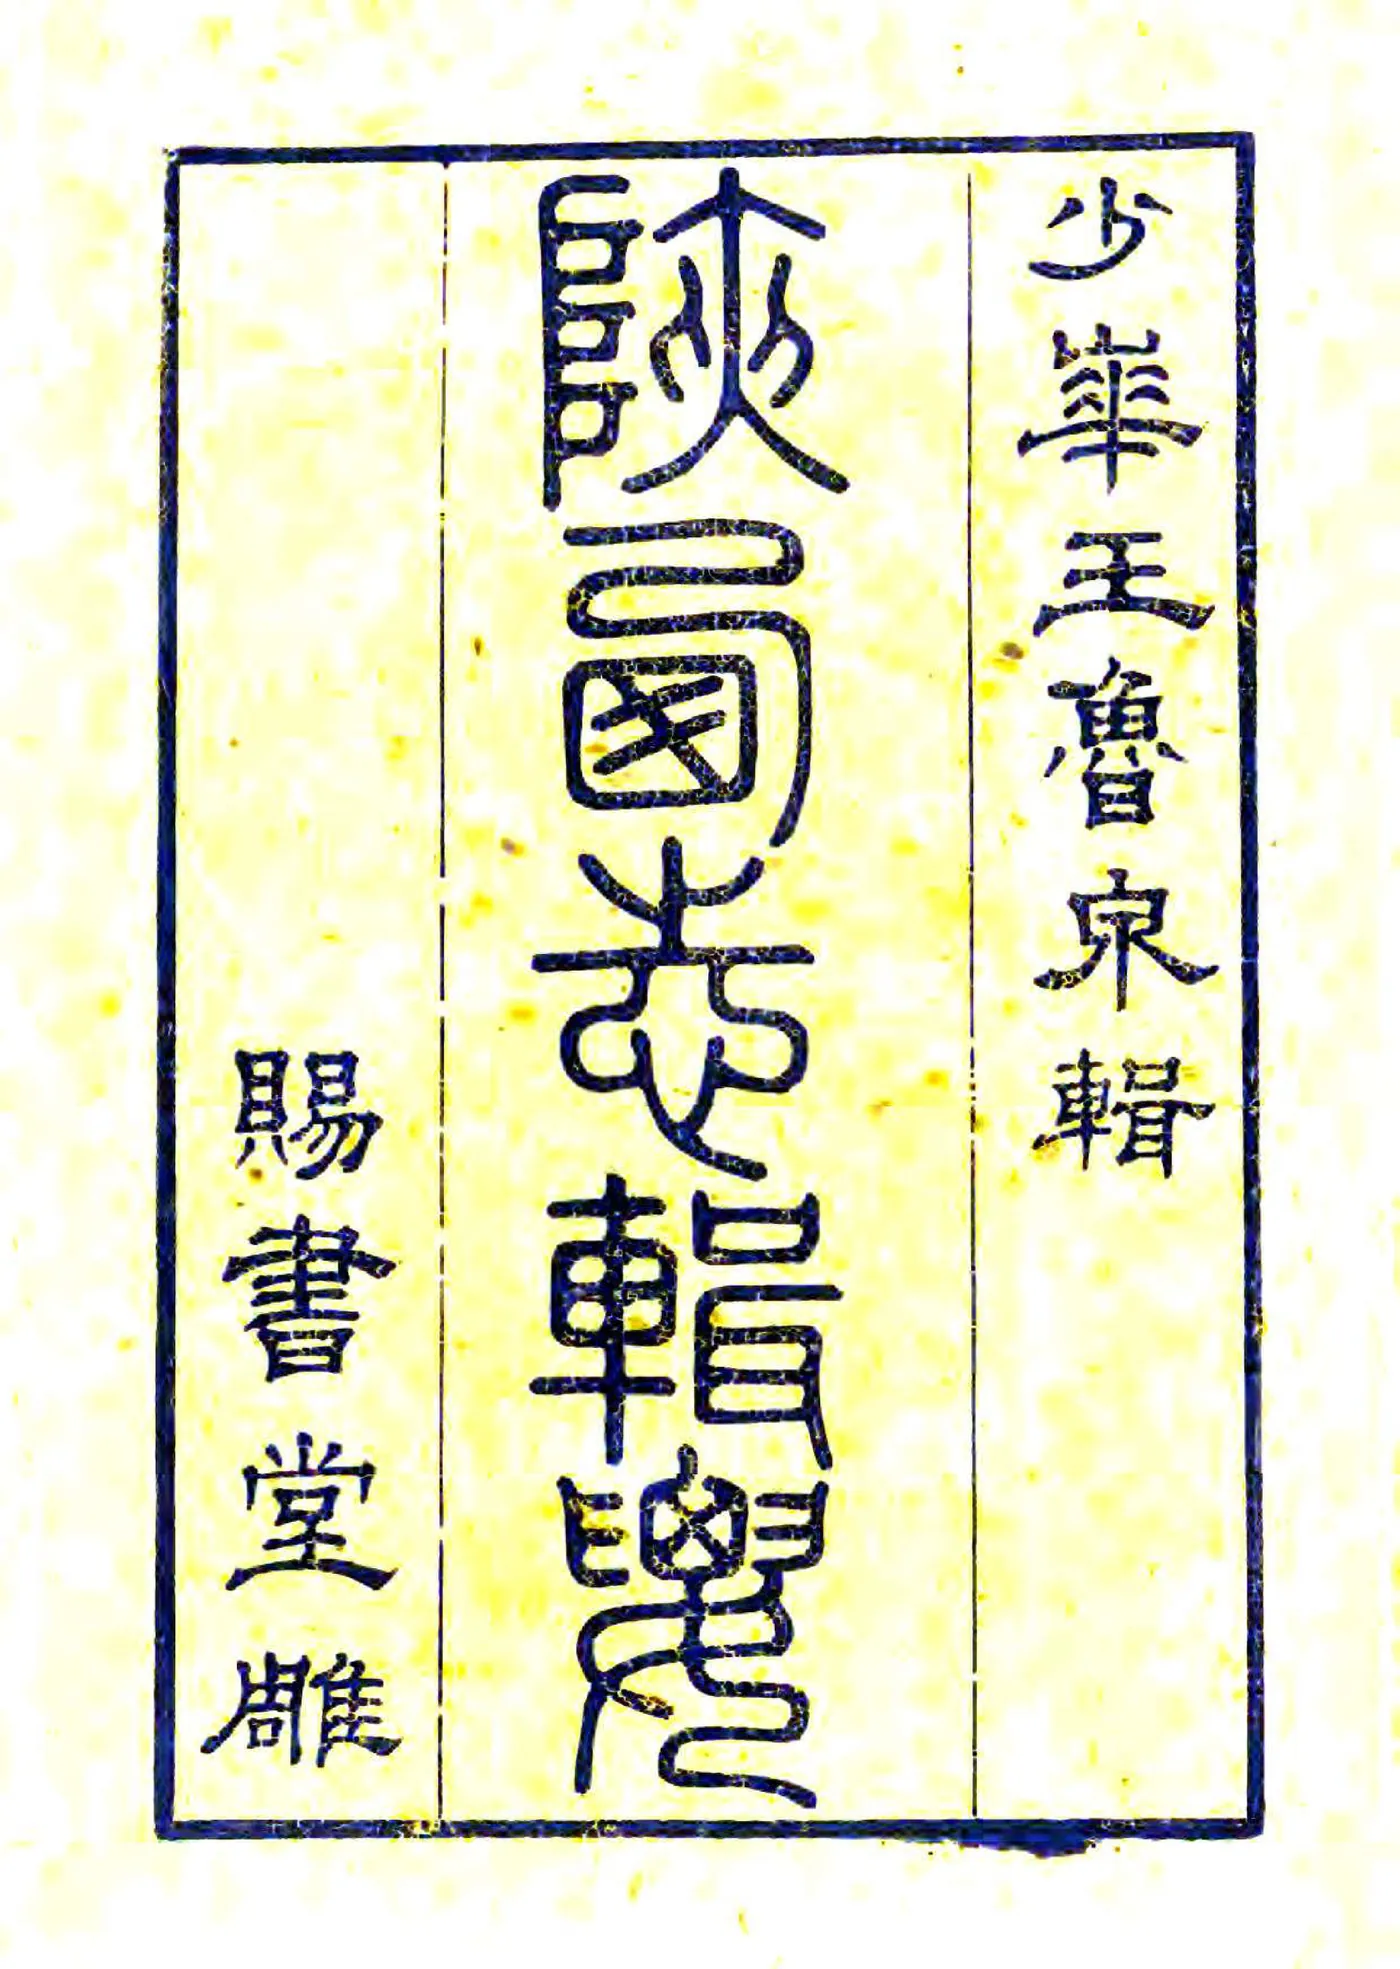 少華王魯泉輯
陝西志輯要
賜書堂雕